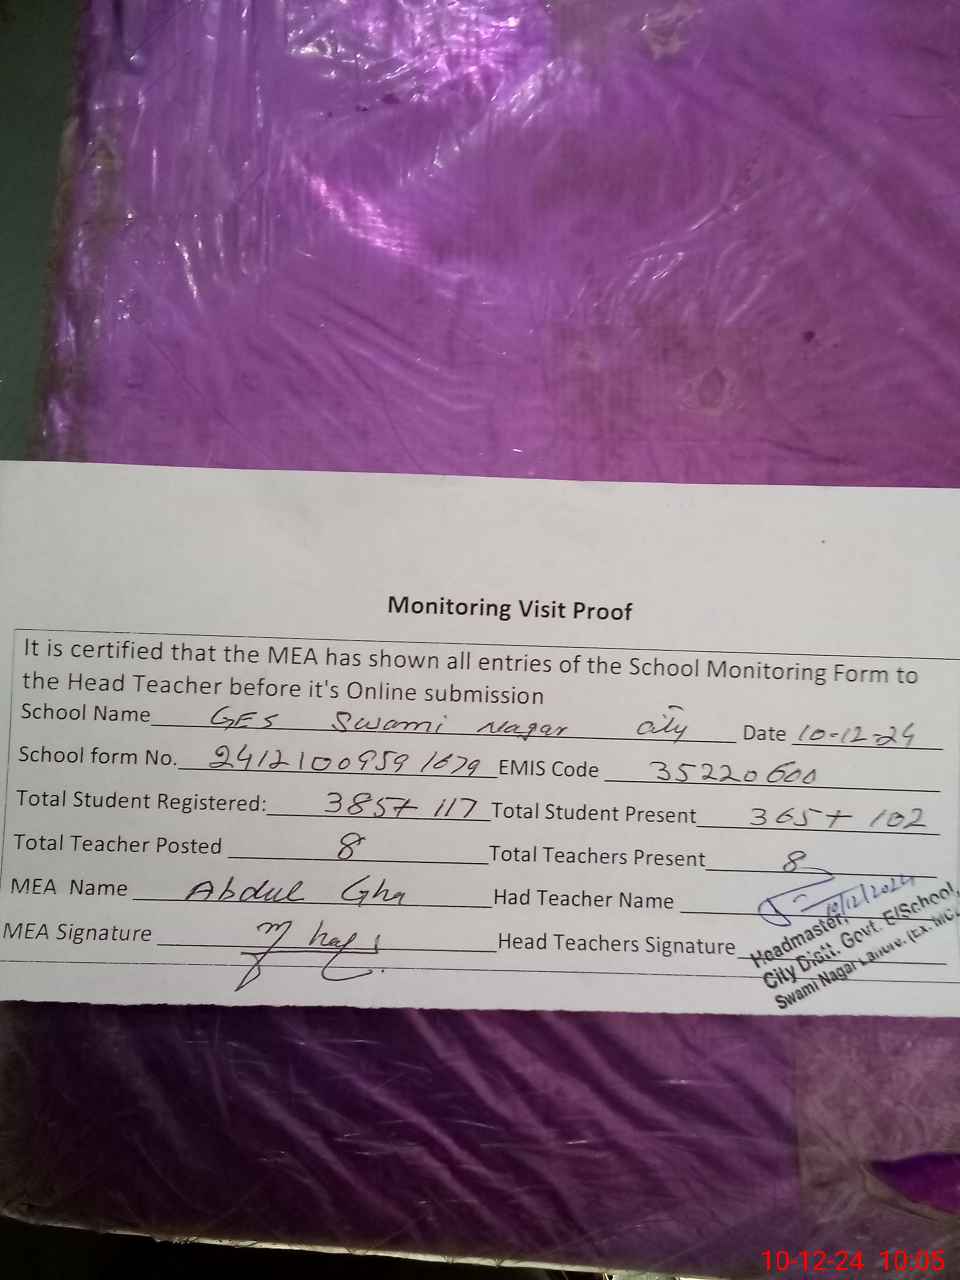 Monitoring Visit Proof
It is certified that the MEA has shown all entries of the School Monitoring Form to
the Head Teacher before it's Online submission
School Name GES Swami Nagar city Date 10-12-24
School form No. 24121009591679 EMIS Code 35220600
Total Student Registered: 385+117 Total Student Present 365+102
Total Teacher Posted 8 Total Teachers Present 8
MEA Name Abdul Gha Had Teacher Name
10/12/2024
MEA Signature Head Teachers Signature
Headmaster,
City Distt. Govt. E/School,
Swami Nagar Lahore. (Ex. MC.
10-12-24 10:05